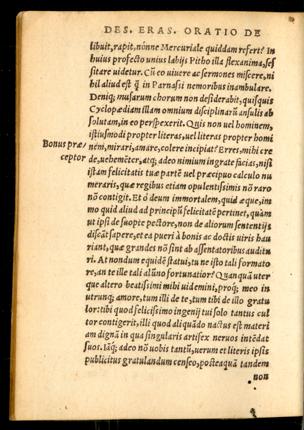 DES. ERAS. ORATIO DE
libuit, rapit, nónne Mercuriale quiddam refert? In
huius profecto unius labijs Pitho illa flexanima, ses
sitare uidetur. Cũ eo uiuere ac sermones miscere, ni
hil aliud est ꝗ̃ in Parnasi nemoribus inambulare.
Deniq; musarum chorum non desiderabit, quisquis
Cyclopædiam illam omnium disciplinarũ ansulis ab
solutam, in eo perspexerit. Quis non uel hominem,
istiusmodi propter literas, uel literas propter homi
nem, mirari, amare, colere incipiat? Erres, mihi cre
Bonus præceptor
de, uehemẽter, atq; adeo nimium ingrate facias, nisi
istam felicitatis tuæ partẽ uel præcipuo calculo nu
meraris, quæ regibus etiam opulentissimis nõ raro
nõ contigit. Et ô deum immortalem, quid æque, im
mo quid aliud ad principũ felicitatẽ pertinet, quàm
ut ipsi de suopte pectore, non de aliorum sententijs
discãt sapere, et ea pueri à bonis ac doctis uiris hau
riant, quæ grandes nõ sint ab assentatoribus auditu
ri. At nondum equidẽ statui, tu ne isto tali formato
re, an te ille tali alũno fortunatior? Quanquã uter
que altero beatissimi mihi uidemini, proq; meo in
utrunq; amore, tum illi de te, tum tibi de illo gratu
lor: tibi quod felicissimo ingenij tui solo tantus cul
tor contigerit, illi quod aliquãdo nactus est materi
am dignã in qua singularis artifex neruos intẽdat
suos. Itaq; adeo nõ uobis tantũ, uerum et literis ipsis
publicitus gratulandum censeo, posteaquã tandem
non